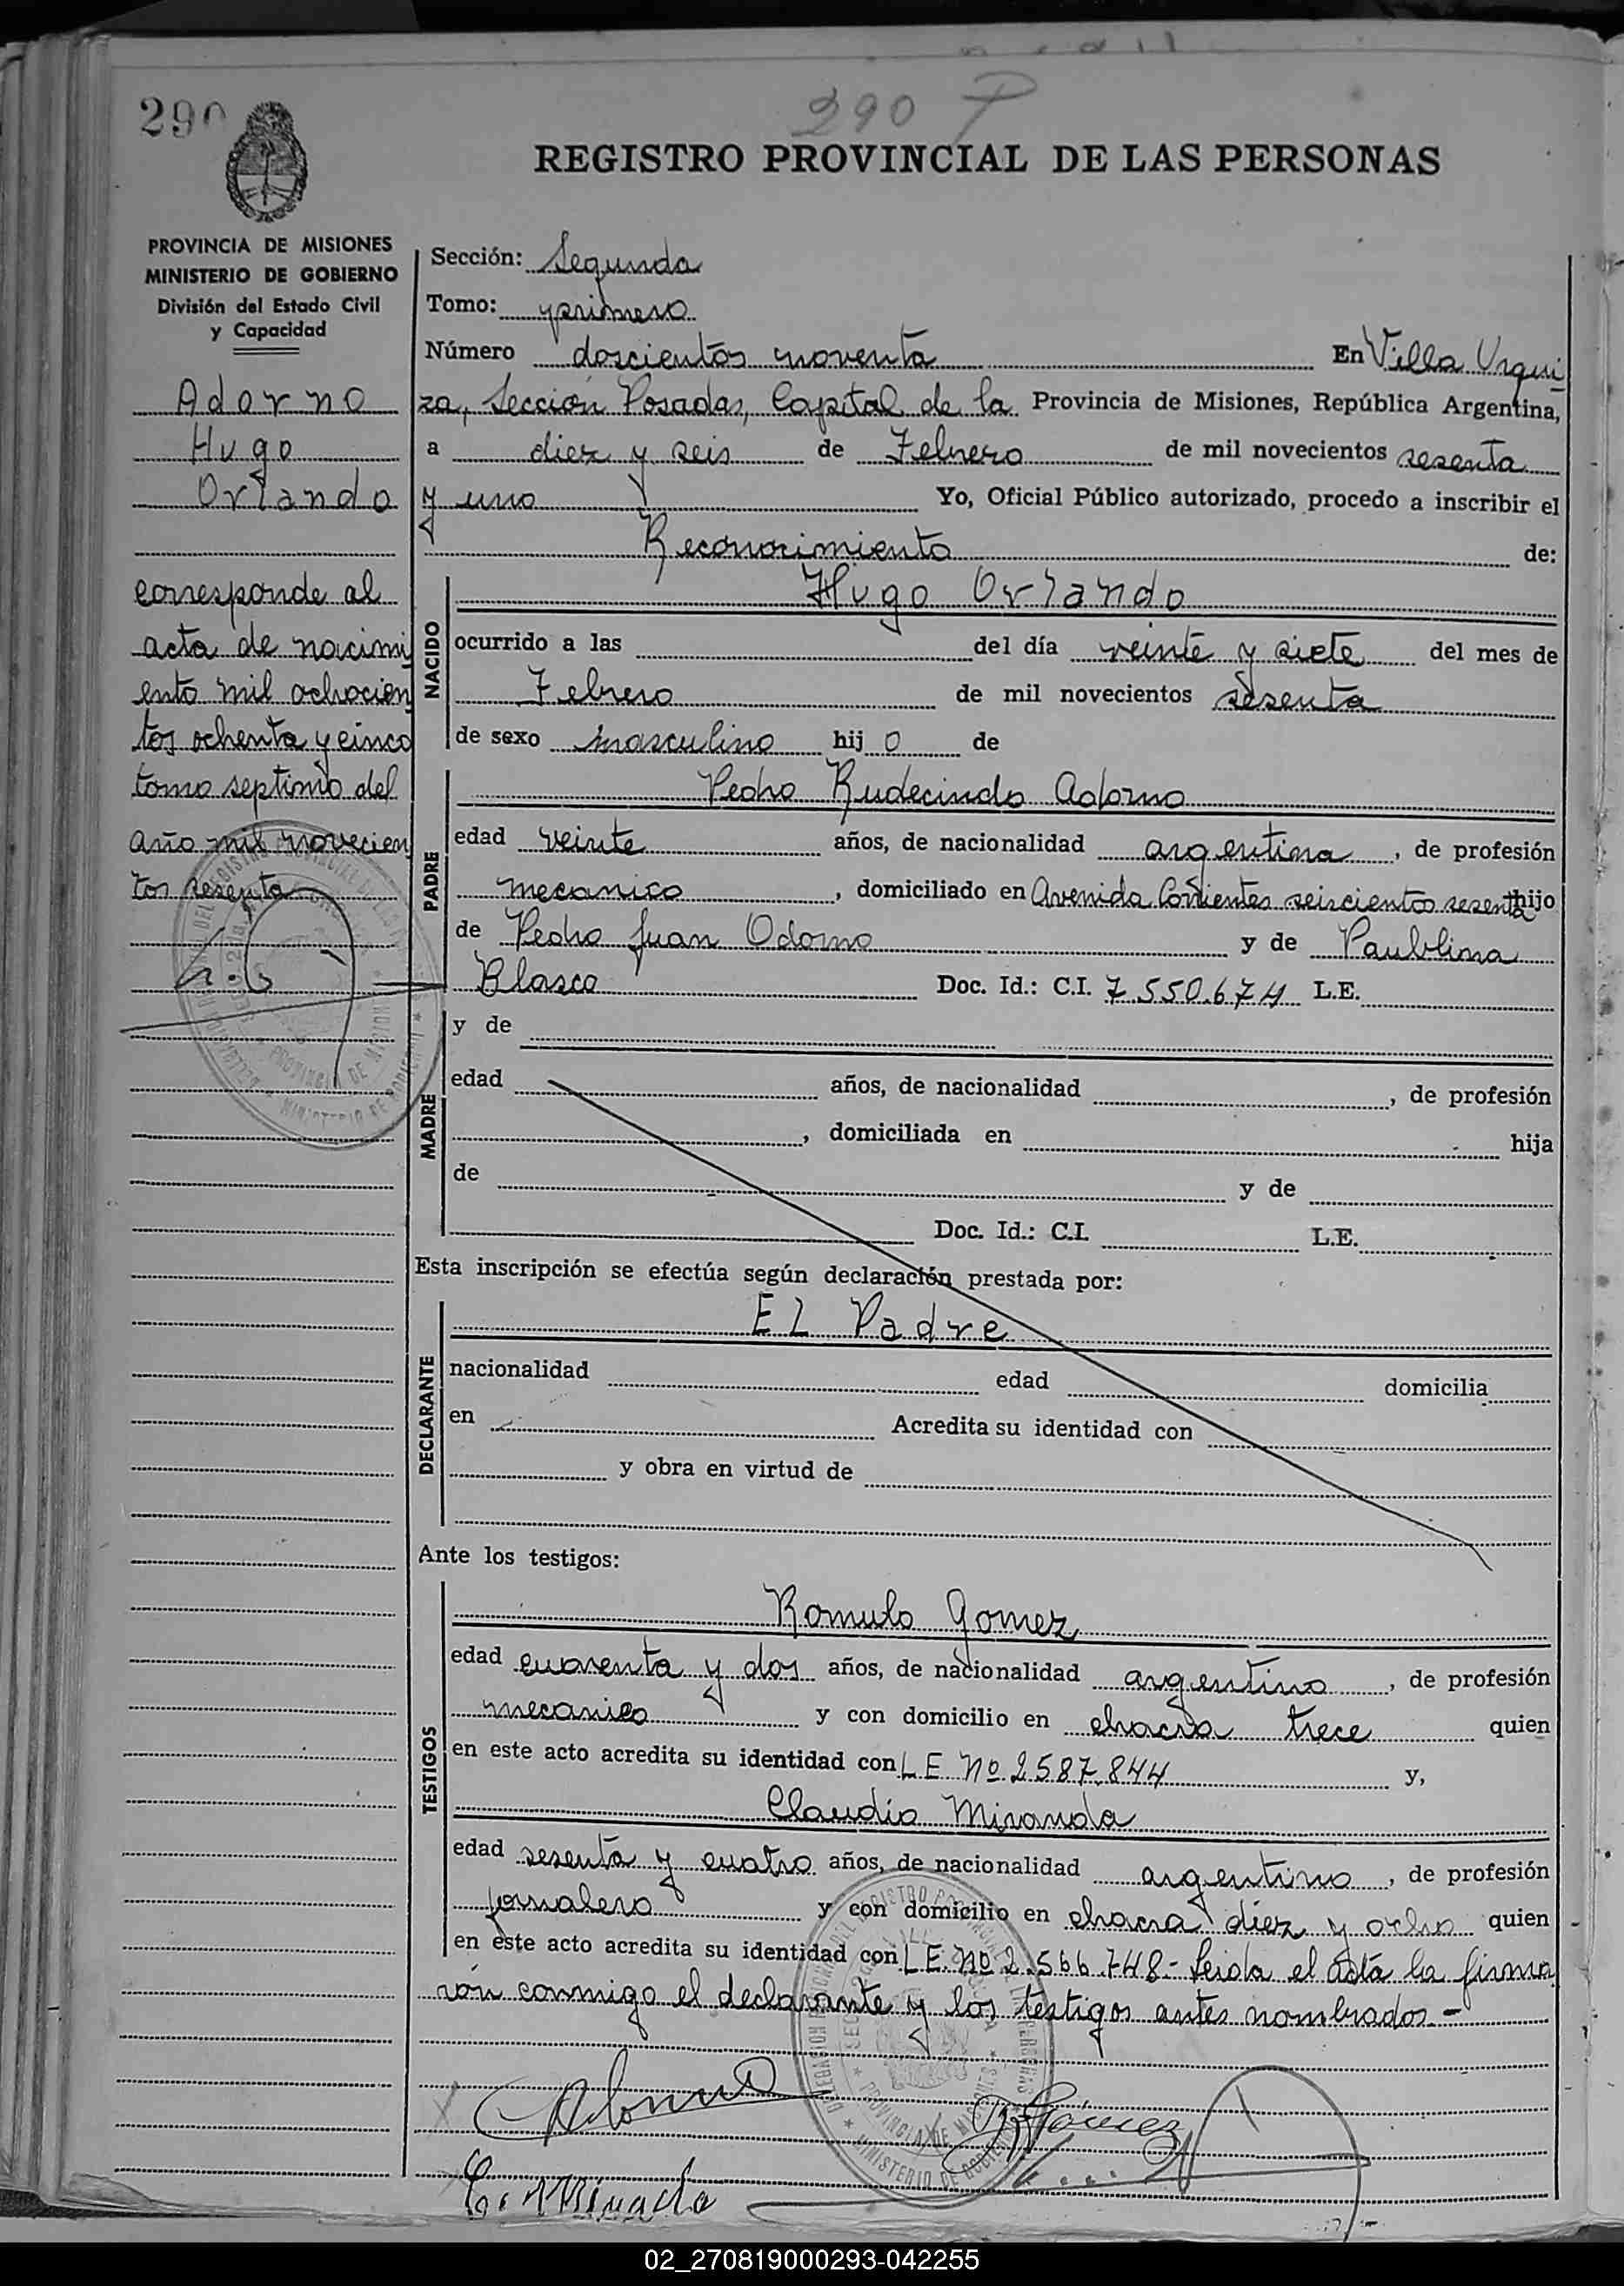 290
290
REGISTRO PROVINCIAL DE LAS PERSONAS
PROVINCIA DE MISIONES
MINISTERIO DE GOBIERNO
División del Estado Civil
y Capacidad
Adorno
Hugo
Orlando
corresponde al
acta de nacimi
ento mil ochocien
tos ochenta y cinco
tomo septimo del
año mil novecien
tos sesenta
Sección: Segunda
Tomo: primero
Número doscientos noventa En Villa Urqui
za, Sección Posadas, Capital de la Provincia de Misiones, República Argentina,
a diez y seis de Febrero de mil novecientos sesenta
y uno Yo, Oficial Público autorizado, procedo a inscribir el
Reconocimiento de:
NACIDO
Hugo Orlando
ocurrido a las del día veinte y siete del mes de
Febrero de mil novecientos sesenta
de sexo masculino hij o de
PADRE
Pedro Rudecindo Adorno
edad veinte años, de nacionalidad argentina, de profesión
mecanico, domiciliado en Avenida Corrientes seiscientos sesenta hijo
de Pedro Juan Odorno y de Paublina
Blasco Doc. Id.: C.I. 7.550.674 L.E.
MADRE
y de
edad años, de nacionalidad , de profesión
, domiciliada en hija
de y de
Doc. Id.: C.I. L.E.
Esta inscripción se efectúa según declaración prestada por:
DECLARANTE
EL Padre
nacionalidad edad domicilia
en Acredita su identidad con
y obra en virtud de
Ante los testigos:
TESTIGOS
Romulo Gomez
edad cuarenta y dos años, de nacionalidad argentino, de profesión
mecanico y con domicilio en chacra trece quien
en este acto acredita su identidad con LE Nº 2.587.844 y,
Claudio Miranda
edad sesenta y cuatro años, de nacionalidad argentino, de profesión
jornalero y con domicilio en chacra diez y ocho quien
en este acto acredita su identidad con LE. Nº 2.566.748.- Leida el acta la firma
rón conmigo el declarante y los testigos antes nombrados.-
Adorno
Gómez
02_270819000293-042255